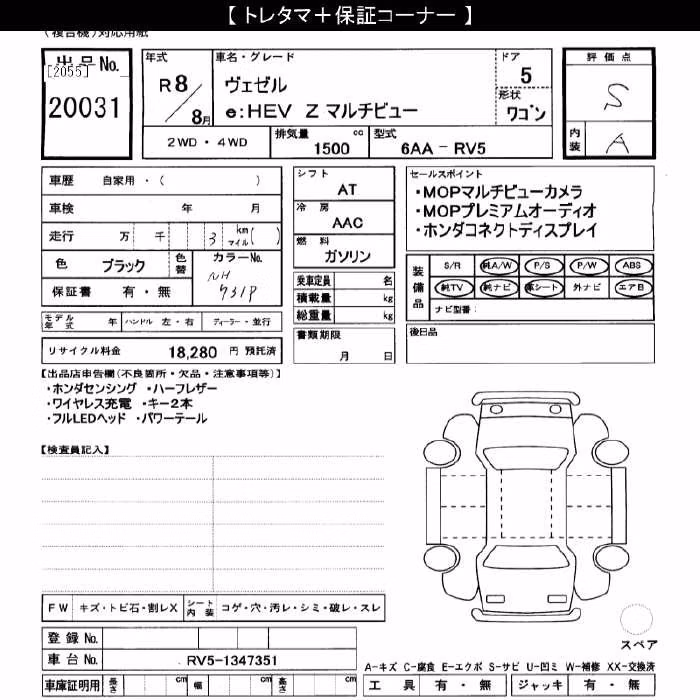 【 トレタマ＋保証コーナー 】
(複合機)対応用紙
出品No.
[2055]
20031
年式
R8／8月
車名・グレード
ヴェゼル
e:HEV Z マルチビュー
ドア
5
形状
ワゴン
評価点
S
内装
A
2WD・4WD
排気量 1500 cc
型式 6AA－RV5
車歴 自家用・( )
車検 年 月
走行 万 千 3 km マイル( )
色 ブラック
色替
カラーNo.
NH
731P
保証書 有・無
シフト
AT
冷房
AAC
燃料
ガソリン
乗車定員 名
積載量 kg
総重量 kg
書類期限
月 日
セールスポイント
・MOPマルチビューカメラ
・MOPプレミアムオーディオ
・ホンダコネクトディスプレイ
装備品
S/R 純A/W P/S P/W ABS
純TV 純ナビ 革シート 外ナビ エアB
ナビ型番：
後日品
モデル年式 年 ハンドル 左・右 ディーラー・並行
リサイクル料金 18,280 円 預託済
【出品店申告欄(不良箇所・欠品・注意事項等)】
・ホンダセンシング ・ハーフレザー
・ワイヤレス充電 ・キー2本
・フルLEDヘッド ・パワーテール
【検査員記入】
FW キズ・トビ石・割レX シート内装 コゲ・穴・汚レ・シミ・破レ・スレ
登録 No.
車台 No. RV5-1347351
車庫証明用 長さ cm 幅 cm 高さ cm
スペア
A-キズ C-腐食 E-エクボ S-サビ U-凹ミ W-補修 XX-交換済
工具 有・無 ジャッキ 有・無